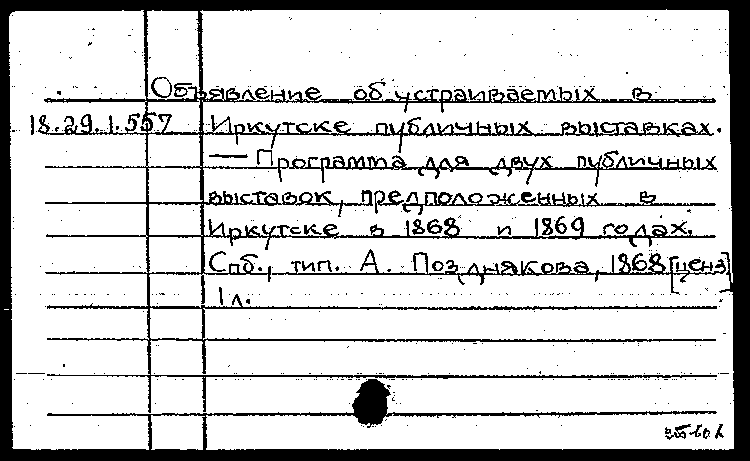 Объявление об устраиваемых в
18.29.1.557 Иркутске публичных выставках.
— Программа для двух публичных
выставок, предположенных в
Иркутске в 1868 и 1869 годах.
Спб., тип. А. Позднякова, 1868 [ценз]
1 л.